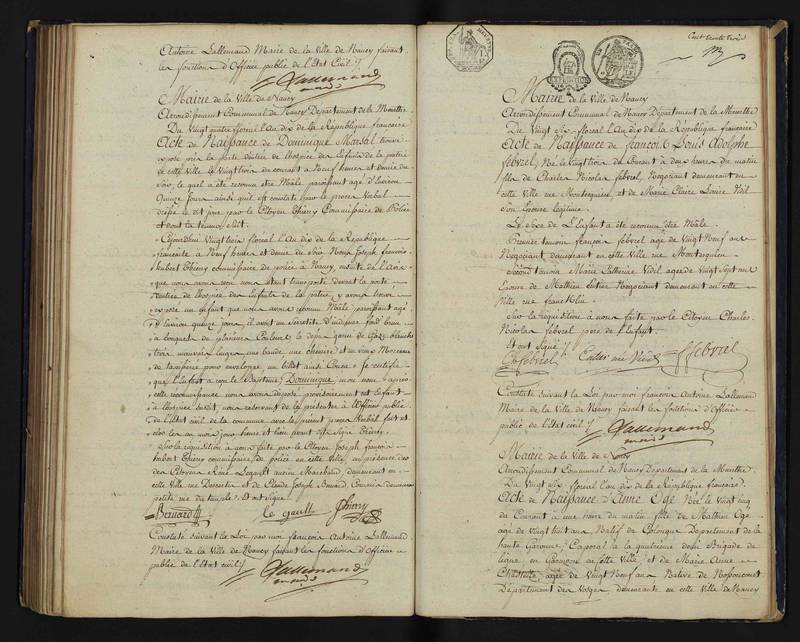 Antoine Lallemand Maire de la Ville de Nancy faisant
les fonctions d'Officier public de l'Etat Civil
Lallemand
maire
Mairie de la Ville de Nancy
Arrondissement Communal de Nancy Département de la Meurthe
Du Vingt quatre floreal l'An dix de la République francaise
Acte de Naissance de Dominique Marsal trouvé
exposé près la porte d'entrée de l'hospice des Enfants de la patrie
de cette Ville le Vingt trois du courant à Neuf heures et demie du
soir, lequel a été reconnu être Mâle paroissant agé d'environ
Quinze jours ainsi qu'il est constaté par le procès Verbal
dressé le dit jour par le Citoyen Thiery Commissaire de Police
et dont la teneur suit.
Cejourd'hui Vingt trois floreal l'An dix de la République
francaise à Neuf heures et demie du soir Nous Joseph francois
Imbert Thiery commissaire de police à Nancy, ensuite de l'avis
que nous avons reçu nous étant transporté devant la porte
d'entrée de l'hospice des Enfants de la patrie, y avons trouvé
exposé un Enfant que nous avons reconnu Mâle paroissant agé
d'environ quinze jours, il avoit un serretete d'indienne fond brun
à bouquets de plusieurs Couleurs le devant garni de Gaze blanche
trois mauvais langes une bande une chemise et un vieux Morceau
de pour enveloppe, un billet ainsi Concu: Je certifie
que l'Enfant a reçu le Baptême; Dominique mon nom: après
cette reconnoissance nous avons déposé provisoirement cet Enfant
à l'hospice susdit, nous réservant de le présenter à l'Officier public
de l'Etat civil de la commune avec le présent procès Verbal fait et
clos les an mois jour heure et lieu avant dits Signé Thiery.
Sur la réquisition à nous faite par le Citoyen Joseph francois
Imbert Thiery commissaire de police en cette Ville, en présence des
Citoyens René Legault ancien Marechal, demeurant en
cette Ville rue et de Claude Joseph Bernard, demeurant
petite rue du temple. Et ont signé
Bernard le gault Thiery
Constaté suivant la Loi par moi francois Antoine Lallemand
Maire de la Ville de Nancy faisant les fonctions d'Officier
public de l'Etat civil
Lallemand
maire
Cent trente trois
Mairie de la Ville de Nancy
Arrondissement Communal de Nancy Département de la Meurthe
Du Vingt six floreal l'An dix de la République francaise
Acte de Naissance de francois Louis Adolphe
febvrel, Né le Vingt trois du Courant à deux heures du matin
fils de Charles Nicolas febvrel, Négociant demeurant en
cette Ville rue Montesquieu, et de Marie Claire
son Epouse légitime.
Le sexe de L'Enfant a été reconnu être Mâle.
Premier temoin francois febvrel agé de Vingt Neuf ans
Négociant demeurant en cette Ville rue Montesquieu
Second temoin Marie Catherine Vidil agée de Vingt Sept ans
Epouse de Mathieu Négociant demeurant en cette
Ville rue francklin.
Sur la réquisition à nous faite par le Citoyen Charles
Nicolas febvrel père de l'Enfant.
Et ont Signé
Ch. febvrel f. febvrel
Constaté suivant la Loi par moi francois Antoine Lallemand
Maire de la Ville de Nancy faisant les fonctions d'Officier
public de l'Etat civil
Lallemand
maire
Mairie de la Ville de Nancy
Arrondissement Communal de Nancy Département de la Meurthe
Du Vingt six floreal l'an dix de la République francaise.
Acte de Naissance d'Anne Ogé Née le Vingt cinq
du Courant à une heure du matin fille de Mathieu Ogé
agé de Vingt huit ans Natif de Département de la
haute Garonne, Caporal à la quatrieme demi Brigade de
ligne en Garnison en cette Ville et de Marie Anne
Chatelle agée de Vingt Neuf ans Native de
Département des Vosges demeurante en cette Ville de Nancy